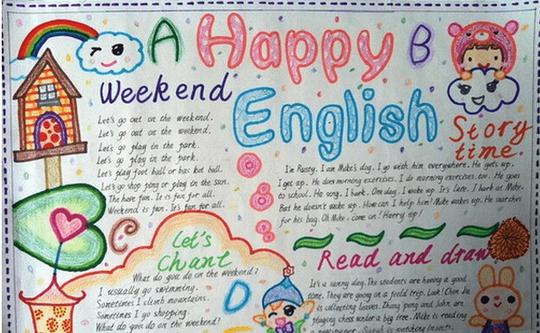 A Happy B
Weekend
English
Let's go out on the weekend.
Let's go out on the weekend.
Let's go play in the park.
Let's go play in the park.
Let's play foot ball or bas ket ball.
Let's go shop ping or play in the sun.
The have fun. It is fun for all.
Weekend is fun. It's fun for all.
Story
time
I'm Rusty. I am Mike's dog. I go with him everywhere. He gets up.
I get up. He does morning exercises. I do morning exercises, too. He goes
to school. He sings. I bark. One day, I wake up. It's late. I bark at Mike.
But he doesn't wake up. How can I help him? Mike wakes up. He searches
for his bag. Oh Mike, come on! Hurry up!
C
Let's
Chant
What do you do on the weekend?
I usually go swimming.
Sometimes I climb mountains.
Sometimes I go shopping.
What do you do on the weekend?
D
Read and draw
It's a sunny day. The students are having a good
time. They are on a field trip. Look! Chen Jie
is collecting leaves. Zhang peng and John are
playing chess under a big tree. Mike is reading
is watching insects.